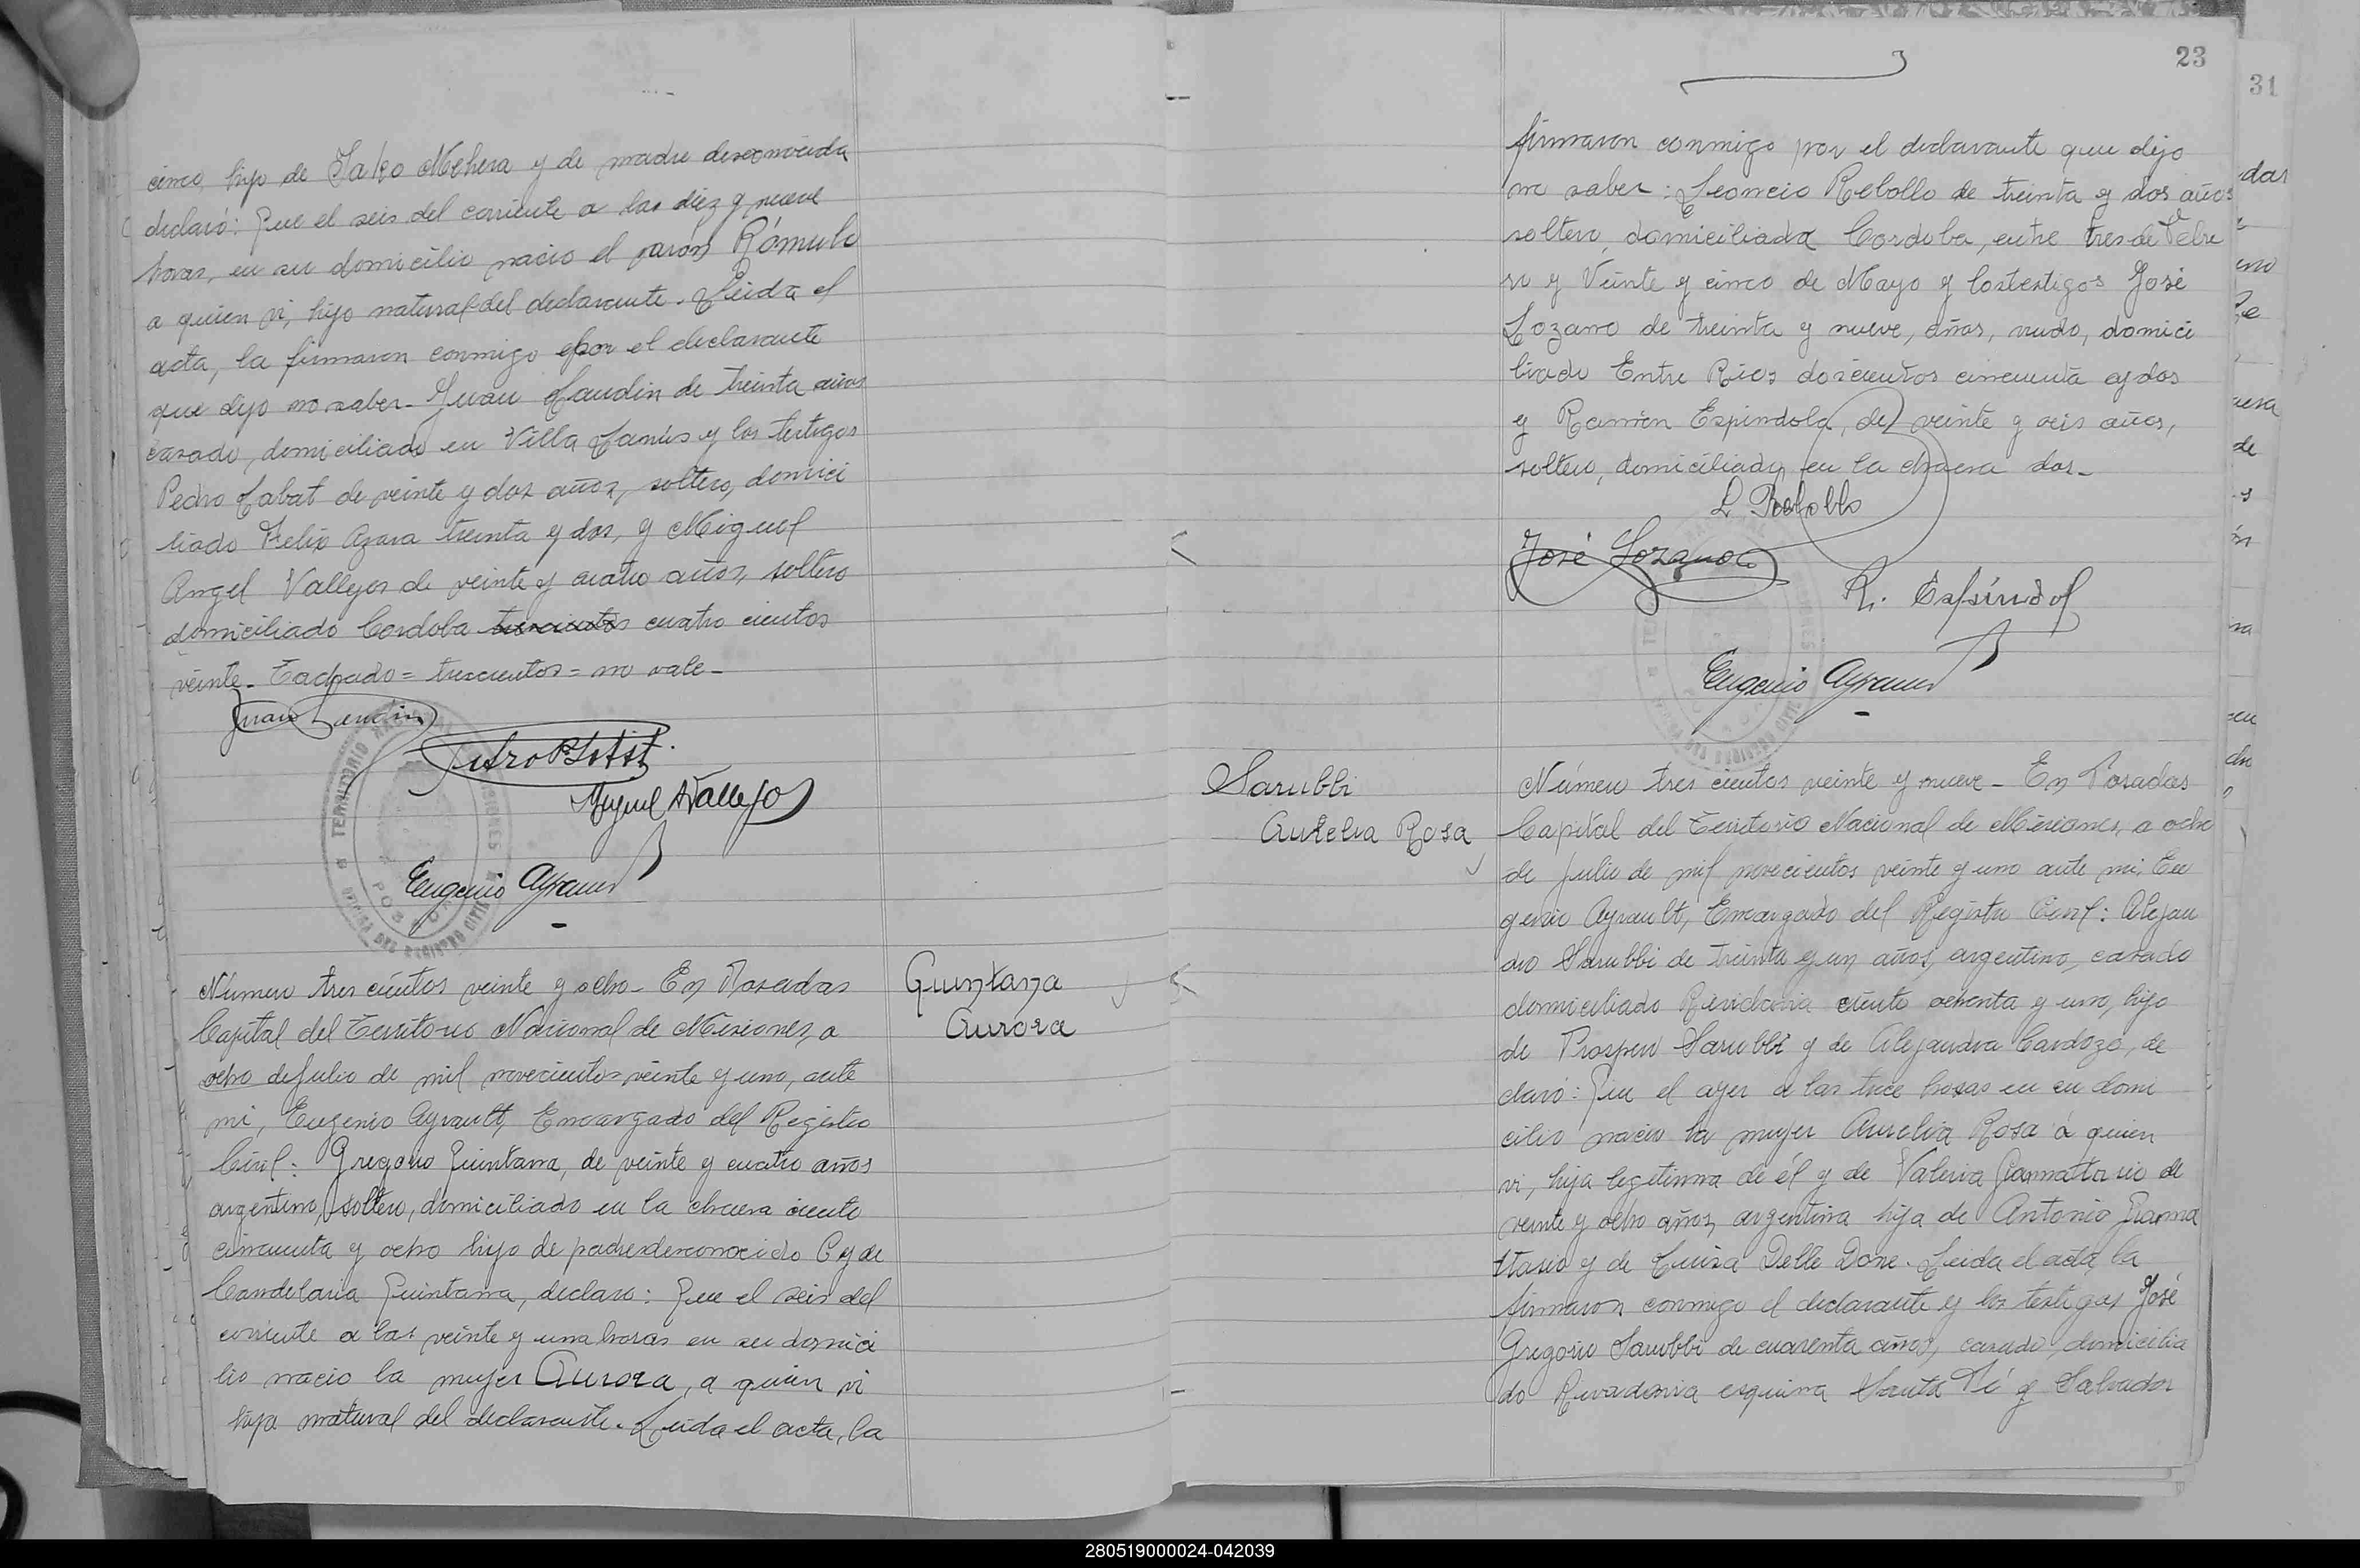 cinco, hijo de Jako Mehera y de madre desconocida
declaró: Que el seis del corriente a las diez y nueve
horas, en su domicilio nacio el varón Rómulo
a quien vi, hijo natural del declarante. Leida el
acta, la firmaron conmigo por el declarante
que dijo no saber - Juan Landin de treinta años
casado, domiciliado en Villa Lanús y los testigos
Pedro Labat de veinte y dos años, soltero, domici
liado Felix Azara treinta y dos, y Miguel
Angel Vallejos de veinte y cuatro años, soltero
domiciliado Cordoba trescientos cuatro cientos
veinte - Tachado = trescientos = no vale -
Juan Landin
Miguel A Vallejos
Eugenio Ayrault
TERRITORIO NACIONAL MISIONES
OFICINA DEL REGISTRO CIVIL
POSADAS
Número tres cientos veinte y ocho - En Posadas
Capital del Territorio Nacional de Misiones, a
ocho de julio de mil novecientos veinte y uno, ante
mi, Eugenio Ayrault, Encargado del Registro
Civil: Gregorio Quintana, de veinte y cuatro años
argentino, soltero, domiciliado en la chacra ciento
cincuenta y ocho hijo de padre desconocido y de
Candelaria Quintana, declaro: Que el seis del
corriente a las veinte y una horas en su domici
lio nacio la mujer Aurora, a quien vi
hija natural del declarante. Leida el acta, la
Quintana
Aurora
23
31
firmaron conmigo por el declarante que dijo
no saber: Leoncio Rebollo de treinta y dos años
soltero, domiciliada Cordoba, entre tres de Febre
ro y Veinte y cinco de Mayo y los testigos José
Lozano de treinta y nueve, años, viudo, domici
liado Entre Rios doscientos cincuenta y dos
y Ramón Espindola, de veinte y seis años,
soltero, domiciliado en la chacra dos -
L Rebollo
José Lozano
R. Espíndol
Eugenio Ayrault
Sarubbi
Aurelia Rosa
Número tres cientos veinte y nueve - En Posadas
Capital del Territorio Nacional de Misiones, a ocho
de julio de mil novecientos veinte y uno ante mi, Eu
genio Ayrault, Encargado del Registro Civil: Alejan
dro Sarubbi de treinta y un años, argentino, casado
domiciliado Rivadavia ciento ochenta y uno, hijo
de Prospero Sarubbi y de Alejandra Cardozo, de
claró: Que el ayer a las trece horas en su domi
cilio nacio la mujer Aurelia Rosa á quien
vi, hija legitima de él y de Valeria Giamattasio de
veinte y ocho años, argentina hija de Antonio Giama
ttasio y de Luisa Delle Done. Leida el acta, la
firmaron conmigo el declarante y los testigos José
Gregorio Sarubbi de cuarenta años, casado, domicilia
do Rivadavia esquina Santa Fé y Salvador
280519000024-042039